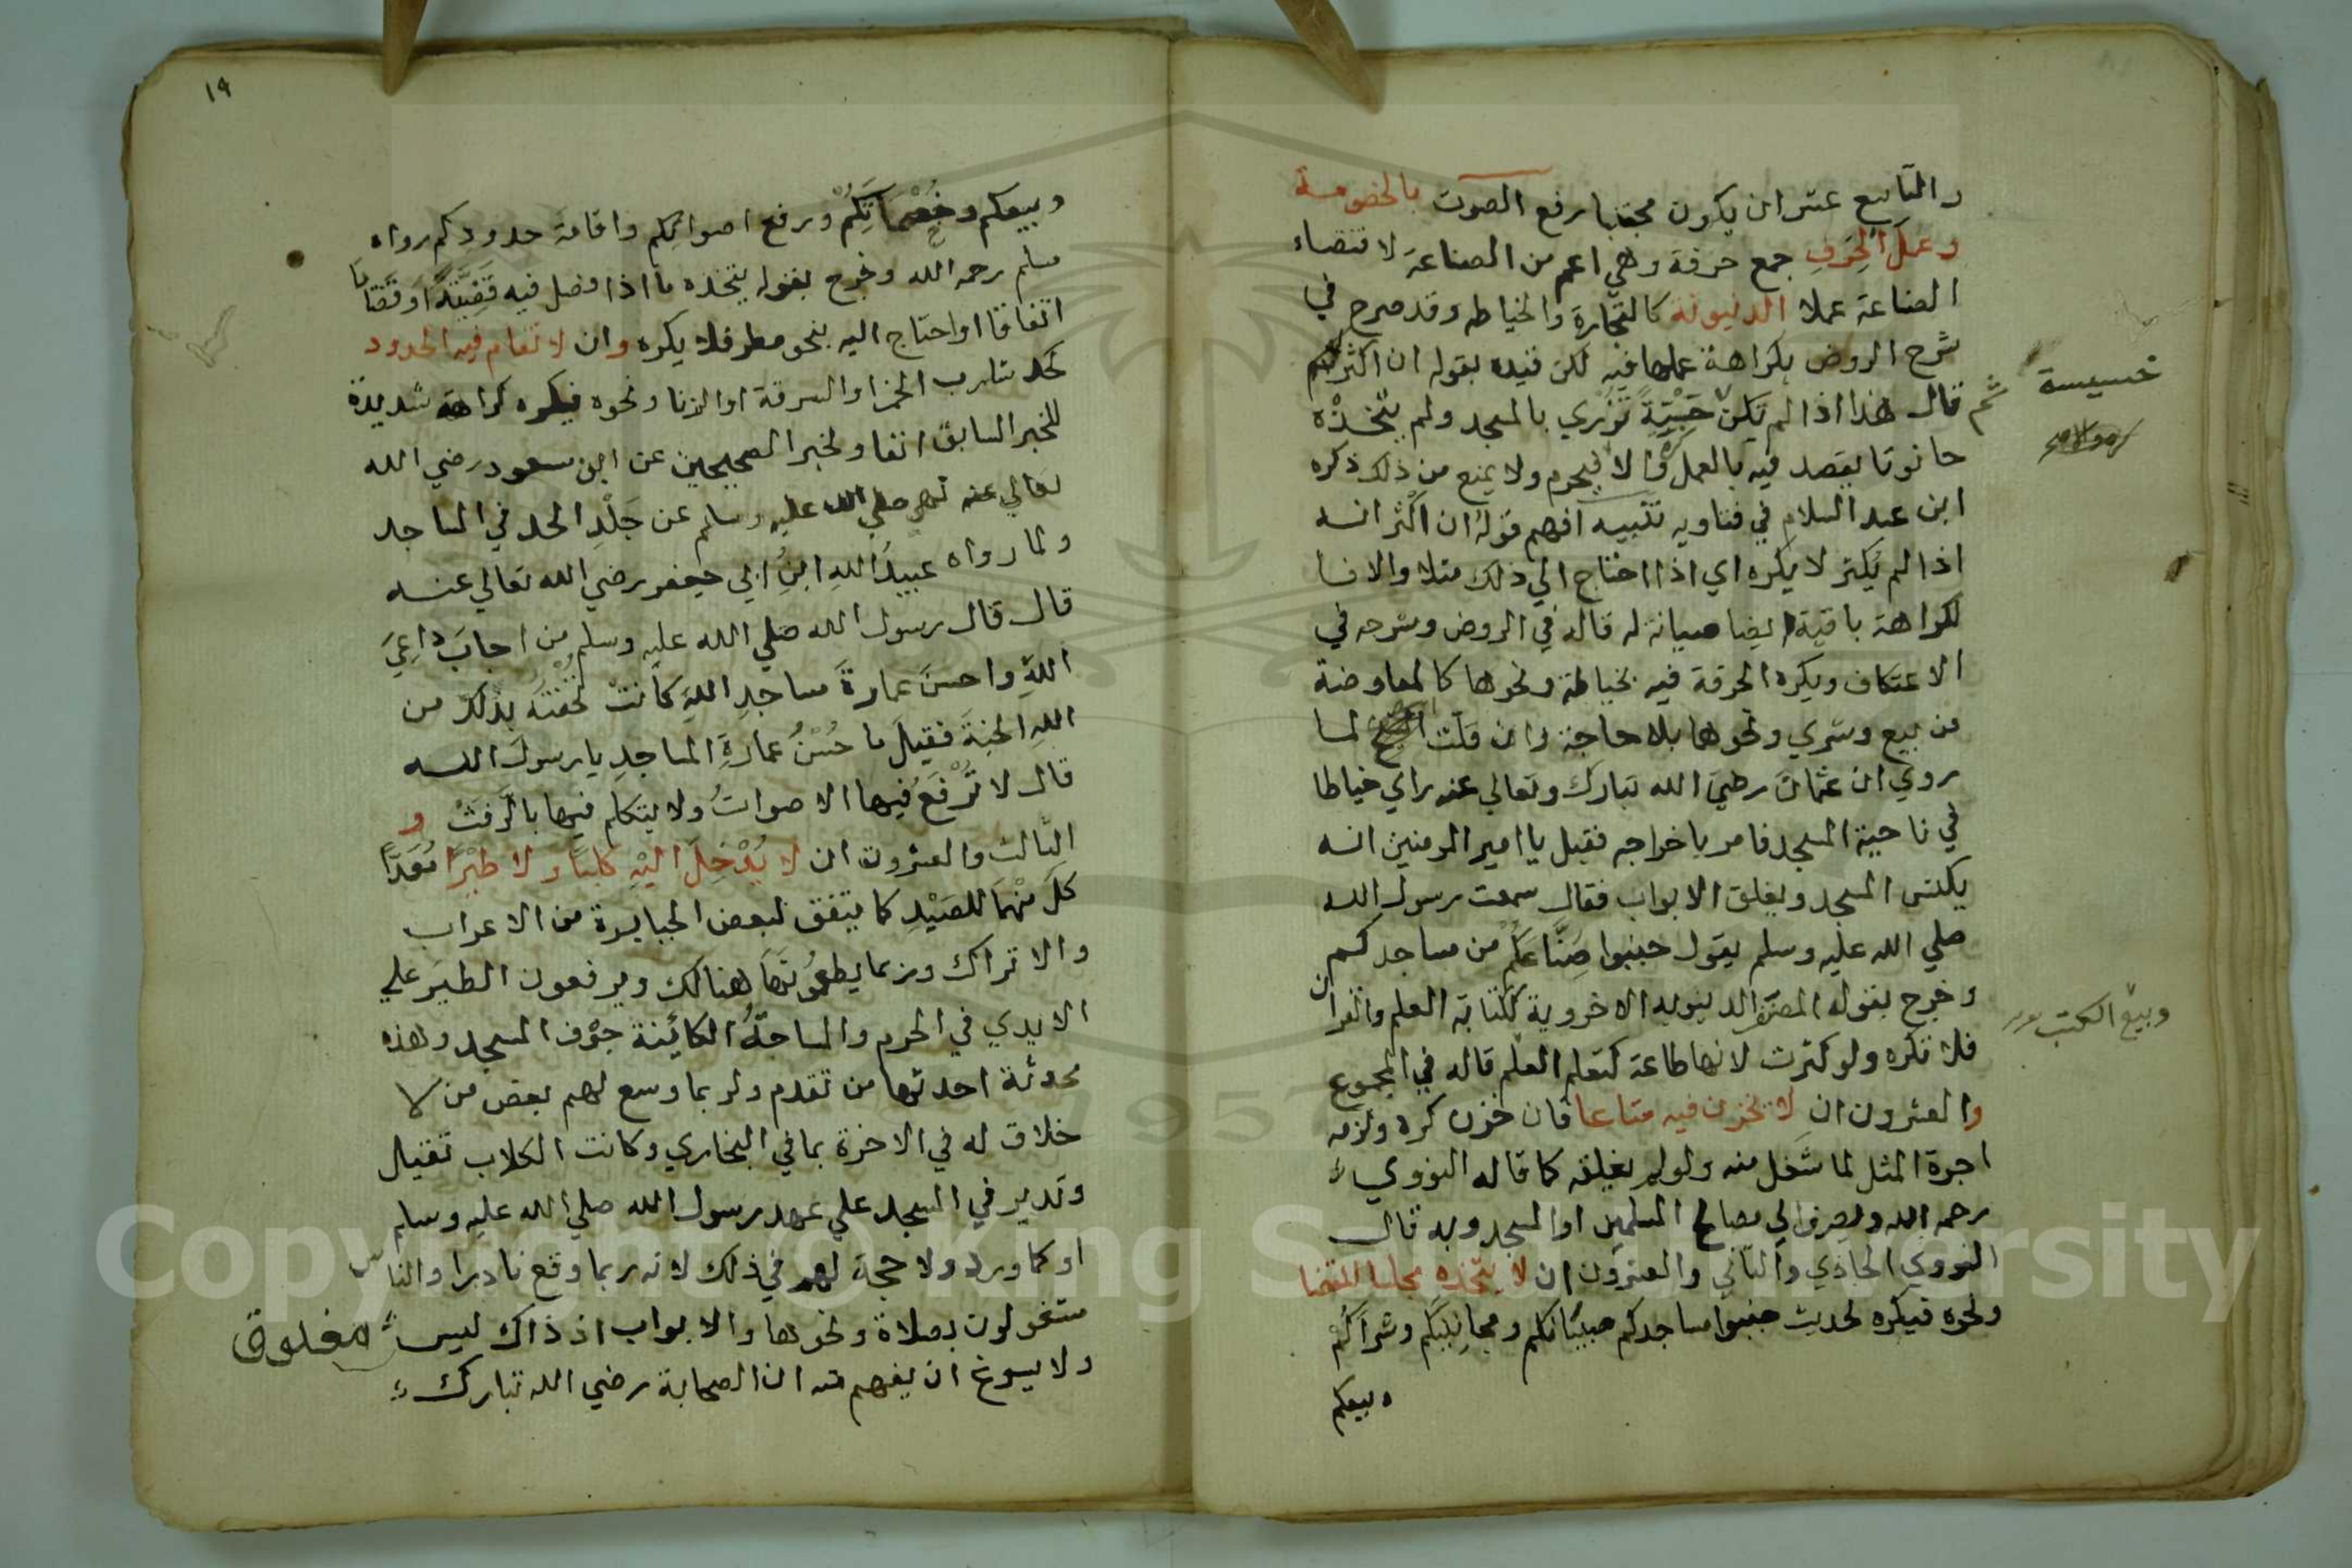 والتاسع عشر ان يكون مجتنبا رفع الصوت بالخصومة
وعمل الحرف جمع حرفة وهي اعم من الصناعة لاقتضاء
الصناعة عملا الدنيوية كالتجارة والخياطه وقد صرح في
شرح الروض بكراهة عملها فيه لكن قيده بقوله ان اكثر ثم
خسيسة
قال هذا اذا لم تكن تزري بالمسجد ولم يتخذه
حانوتا يقصد فيه بالعمل والا فيحرم ولا يمنع من ذلك ذكره
ابن عبد السلام في فتاويه تنبيه افهم قوله ان اكثر انه
اذا لم يكثر لا يكره اي اذا احتاج الي ذلك مثلا والا فا
لكراهة باقية ايضا صيانة له قاله في الروض وشرحه في
الاعتكاف ويكره الحرفة فيه بخياطة ونحوها كالمعاوضة
من بيع وشري ونحوها بلا حاجة وان قلت لما
روي ان عثمان رضي الله تبارك وتعالي عنه راي خياطا
في ناحية المسجد فامر باخراجه فقيل يا امير المومنين انه
يكنس المسجد ويغلق الابواب فقال سمعت رسول الله
صلي الله عليه وسلم يقول جنبوا صناعكم من مساجدكم
وخرج بقوله المصنف الدنيويه الاخروية ككتابة العلم والقران
وبيع الكتب
فلا تكره ولو كثرت لانها طاعة كتعلم العلم قاله في المجموع
والعشرون ان لا يخزن فيه متاعا فان خزن كره ولزمه
اجرة المثل لما شغل منه ولو لم يغلقه كما قاله النووي
رحمه الله ويصرف الي مصالح المسلمين او المسجد وبه قال
النووي الحادي والثاني والعشرون ان لا يتخذه مجلسا للقضا
ونحوه فيكره لحديث جنبوا مساجدكم صبيانكم ومجانينكم وشراكم
وبيعكم
١٩
وبيعكم وخصماتكم ورفع اصواتكم واقامة حدودكم رواه
مسلم رحمه الله وخرج بقوله يتخذه ما اذا فصل فيه قضية او قضايا
اتفاقا او احتاج اليه بنحو مطر فلا يكره وان لا تقام فيه الحدود
كحد شارب الخمر او السرقة او الزنا ونحوه فيكره كراهة شديدة
للخبر السابق انفا ولخبر الصحيحين عن ابن مسعود رضي الله
تعالي عنه نهي صلي الله عليه وسلم عن جلد الحد في المساجد
ولما رواه عبيد الله ابن ابي جعفر رضي الله تعالي عنه
قال قال رسول الله صلي الله عليه وسلم من اجاب داعي
الله واحسن عمارة مساجد الله كانت تحفته بذلك من
الله الجنة فقيل ما حسن عمارة المساجد يا رسول الله
قال لا ترفع فيها الاصوات ولا يتكلم فيها بالرفث و
الثالث والعشرون ان لا يدخل اليه كلبا ولا طيرا معدا
كل منهما للصيد كما يتفق لبعض الجبابرة من الاعراب
والاتراك وربما يطعمونها هنالك ويرفعون الطير علي
الايدي في الحرم والساحة الكائنة جوف المسجد وهذه
محدثة احدثها من تقدم ولربما وسع لهم بعض من لا
خلاق له في الاخرة بما في البخاري وكانت الكلاب تقبل
وتدبر في المسجد علي عهد رسول الله صلي الله عليه وسلم
او كما ورد ولا حجة لهم في ذلك لانه ربما وقع نادرا والناس
مشغولون بصلاة ونحوها والابواب اذ ذاك ليس مغلوق
ولا يسوغ ان يفهم منه ان الصحابة رضي الله تبارك
Copyright © King Saud University
1957